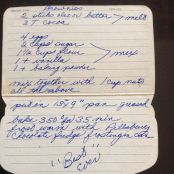 Brownies
2 sticks oleo or butter > melt
3 T cocoa
4 eggs
2 cups sugar
1½ cups flour > mix
1 t vanilla
1 t baking powder
mix together with 1 cup nuts
all the above
put in 13x9" pan greased
bake 350° for 35 min
frost warm with Pillsbury
Chocolate fudge frosting in can
"Best
Ever"